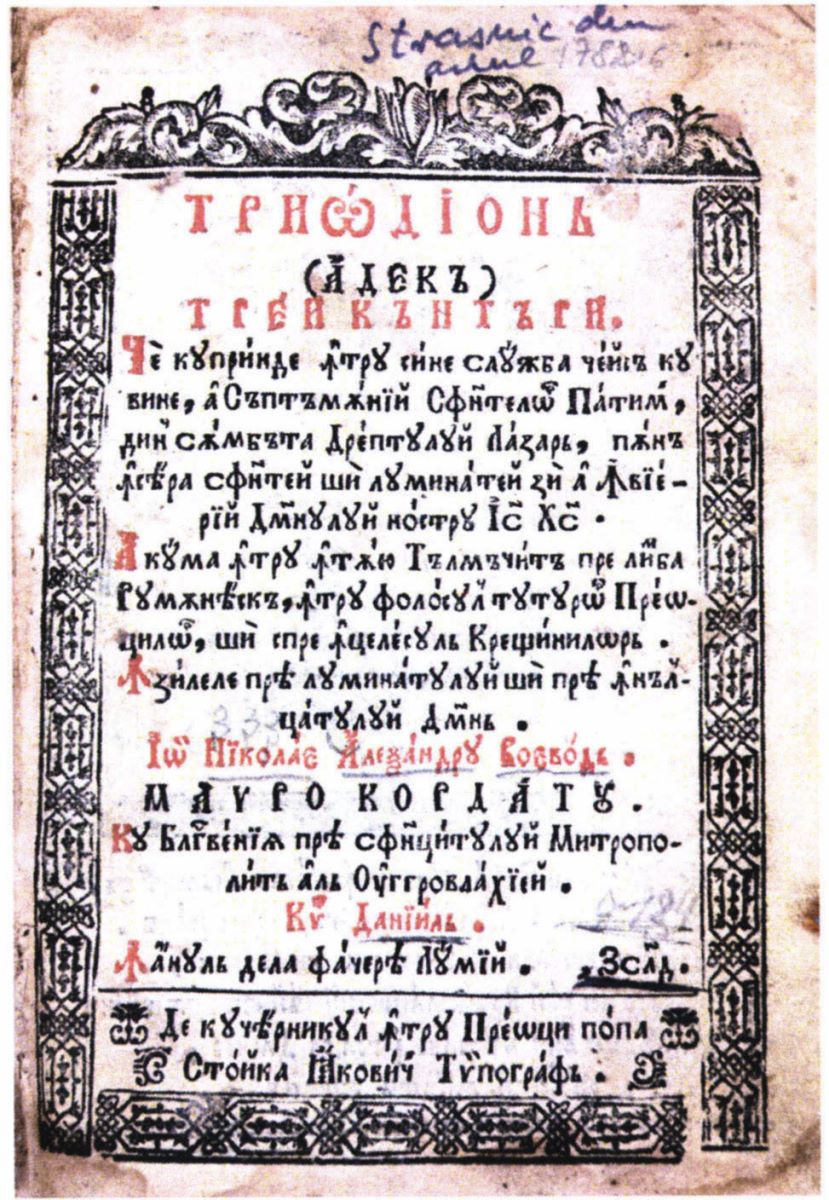 Strasnic din
anul 1782
ТРИѠ҆ДІОНЬ
(А҆ДЕКЪ)
ТРЕ́Й КЪНТЪРИ҆.
Чѐ кꙋпри́нде ꙟ҆трꙋ си́не слꙋ́жба че́йсъ кꙋ
вине, а҆ Съптъмѫ́нїй Сфи҃телѡⷬ҇ Па́тимй,
дин҆ сѫ́мбъта Дре́птꙋлꙋй Ла́заръ, пѫ́нъ
ꙟ҆сѣ́ра сфи҃тей шѝ лꙋмина́тей зѝ а҆ ꙟ҆вїе-
рїй Дм҃нꙋлꙋй но́стрꙋ І҆с҃ Хс҃.
Акꙋ́ма ꙟ҆трꙋ ꙟ҆тѫ́ю Тълмъчи́тъ пре ли́мба
Рꙋмѫнѣ́скъ, ꙟ҆трꙋ фоло́сꙋл҆ тꙋтꙋрѡⷬ҇ Прео́-
цилѡⷬ҇, шѝ спре ꙟ҆целе́сꙋль Крещинилѡрь.
Ꙟзи́леле прѣ́ лꙋмина́тꙋлꙋй шѝ прѣ́ ꙟ҆нъл҆-
ца́тꙋлꙋй Дм҃нь.
І҆ѡⷩ҇ Нїкола́е А҆леѯа́ндрꙋ Воево́дь.
МАѴРО КОРДАТꙊ.
Кꙋ Блгⷭ҇ве́нїѧ прѣ́ сфи҃ци́тꙋлꙋй Митропо-
ли́ть а҆ль Оу҆ггровла́хїей.
Кѵⷬ҇ Данїи́ль.
Ꙟа́нꙋль дела фа́черѣ Лꙋ́мїй. ҂ЗСЛД.
Де кꙋче́рникꙋл҆ ꙟ҆трꙋ Прео́ци по́па
Сто́йка І҆а҆ко́вичй Тѵ҆погра́фь.